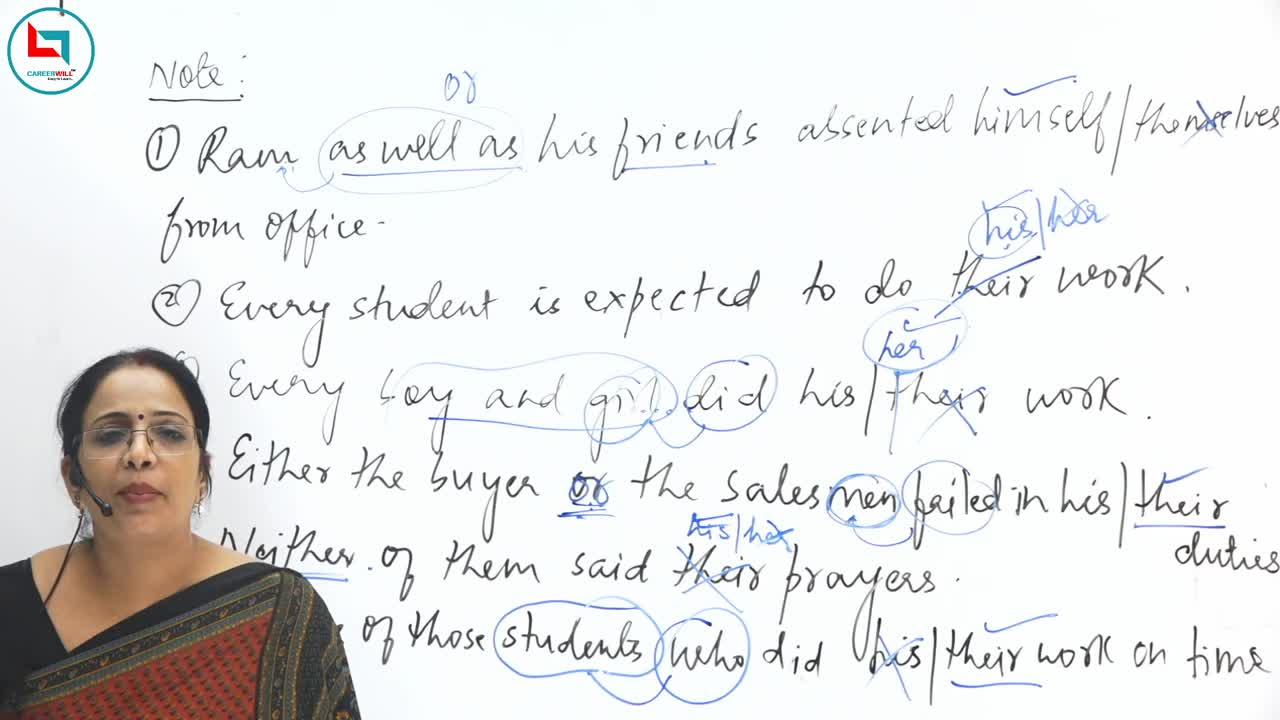 CAREERWILL
Note:
or
① Ram as well as his friends absented himself/themselves
from office.
his/her
② Every student is expected to do their work.
her
Every boy and girl did his/their work.
Either the buyer or the salesmen failed in his/their
duties
his/her
Neither of them said their prayers.
of those students who did his/their work on time